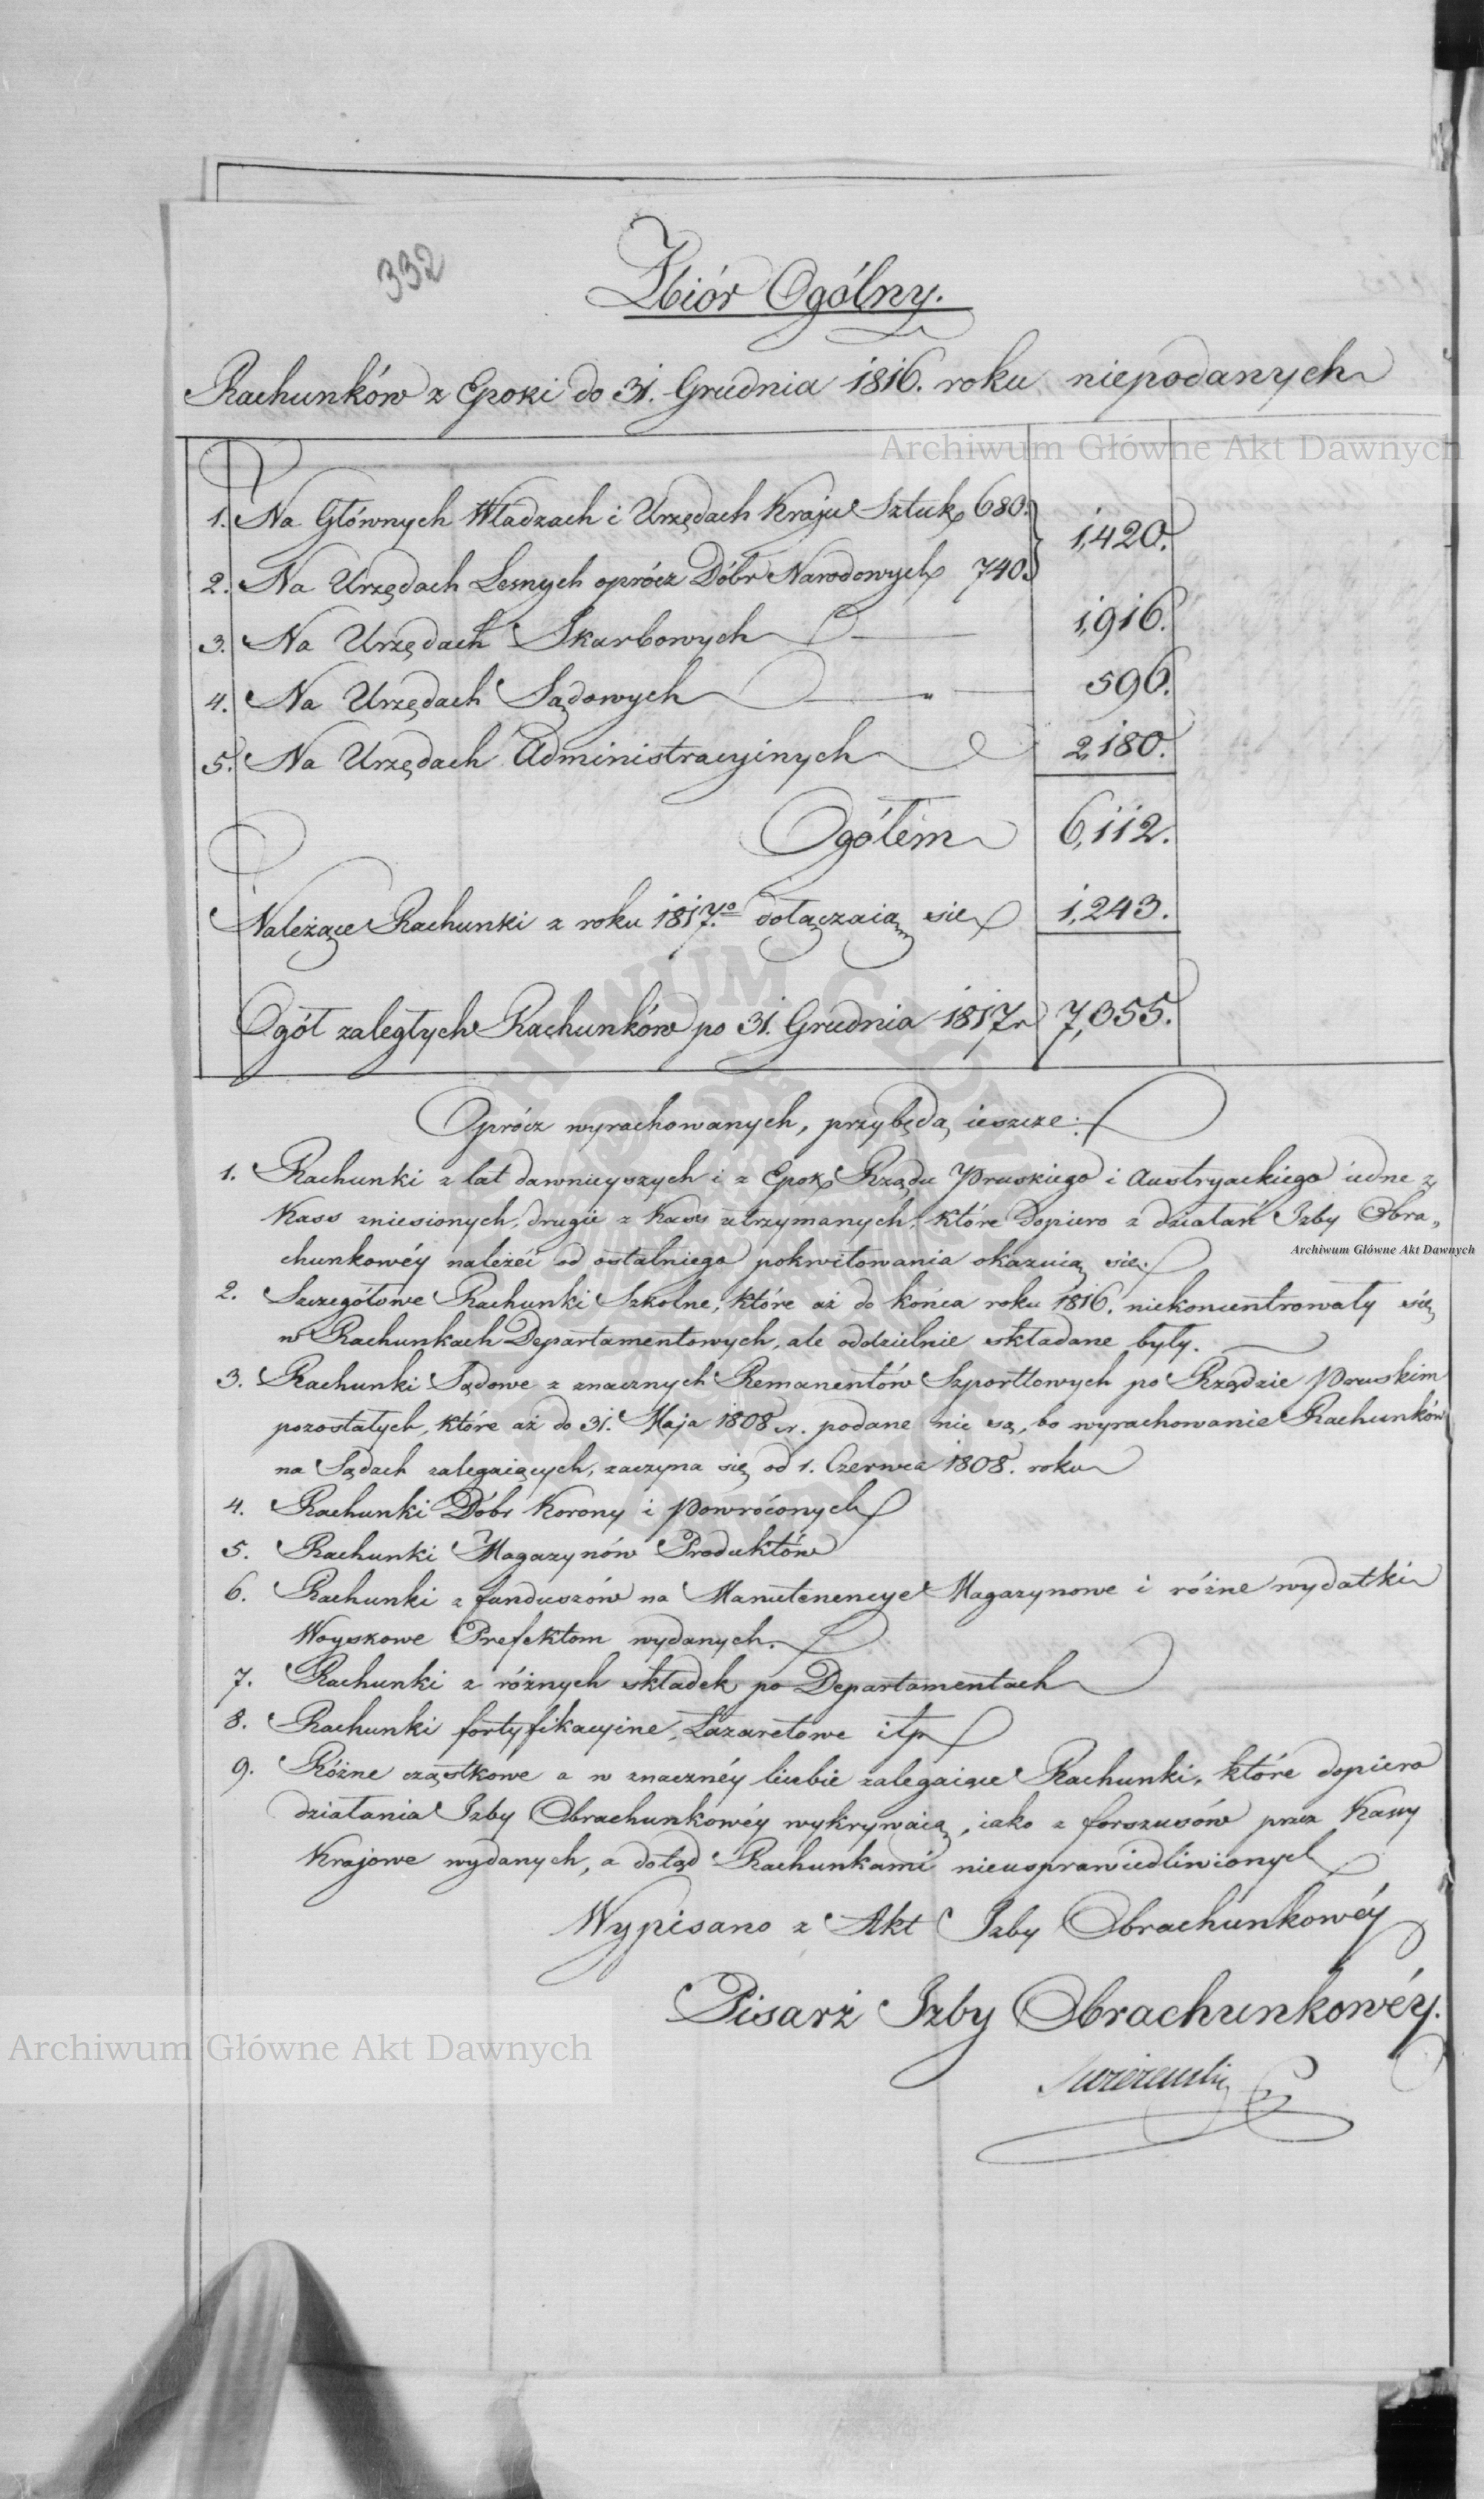 332
Zbiór Ogólny.
Rachunków z Epoki do 31. Grudnia 1816. roku niepodanych
Archiwum Główne Akt Dawnych
1. Na Głównych Władzach i Urzędach Kraju Sztuk 680. } 1,420.
2. Na Urzędach Lesnych oprócz Dóbr Narodowych 740.
3. Na Urzędach Skarbowych 1,916.
4. Na Urzędach Sądowych „ 596.
5. Na Urzędach Administracyinych 2,180.
Ogółem 6,112.
Należące Rachunki z roku 1817.go dołączaią się 1,243.
Ogół zaległych Rachunków po 31. Grudnia 1817 r 7,355.
Oprócz wyrachowanych, przybędą ieszcze:
1. Rachunki z lat dawnieyszych i z Epok Rządu Pruskiego i Austryackiego iedne z
Kass zniesionych, drugie z Kass utrzymanych, które dopiero z działań Izby Obra„
Archiwum Główne Akt Dawnych
chunkowéy należéć od ostatniego pokwitowania okazuią się.
2. Szczegółowe Rachunki Szkolne, które aż do końca roku 1816. niekoncentrowały się
w Rachunkach Departamentowych, ale oddzielnie składane były.
3. Rachunki Sądowe z znacznych Remanentów Szportlowych po Rządzie Pruskim
pozostałych, które aż do 31. Maja 1808 r. podane nie są, bo wyrachowanie Rachunków
na Sądach zalegaiących, zaczyna się od 1. Czerwca 1808. roku
4. Rachunki Dóbr Korony i Powróconych
5. Rachunki Magazynów Produktów
6. Rachunki z funduszów na Manutenencye Magazynowe i różne wydatki
Woyskowe Prefektom wydanych.
7. Rachunki z różnych składek po Departamentach
8. Rachunki fortyfikacyine, Lazaretowe itp
9. Różne cząstkowe a w znacznéy liczbie zalegaiące Rachunki, które dopiero
działania Izby Obrachunkowéy wykrywaią, iako z forszusów przez Kassy
Krajowe wydanych, a dotąd Rachunkami nieusprawiedliwionych
Wypisano z Akt Izby Obrachunkowéy
Pisarz Izby Obrachunkowéy.
Archiwum Główne Akt Dawnych